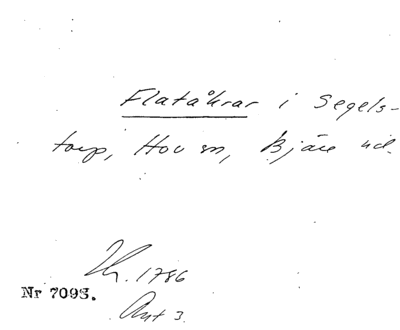 Flatåkrar i Segels-
torp, Hov sn, Bjäre hd.
Kr. 1786
Nr 7093.
Akt 3